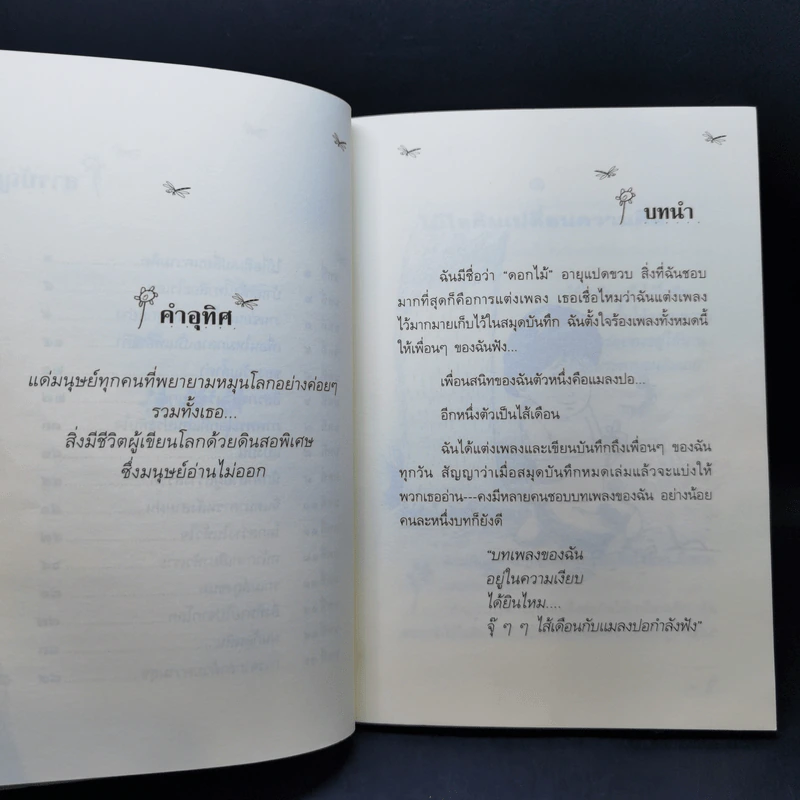 คำอุทิศ
แด่มนุษย์ทุกคนที่พยายามหมุนโลกอย่างค่อยๆ
รวมทั้งเธอ...
สิ่งมีชีวิตผู้เขียนโลกด้วยดินสอพิเศษ
ซึ่งมนุษย์อ่านไม่ออก
บทนำ
ฉันมีชื่อว่า "ดอกไม้" อายุแปดขวบ สิ่งที่ฉันชอบ
มากที่สุดก็คือการแต่งเพลง เธอเชื่อไหมว่าฉันแต่งเพลง
ไว้มากมายเก็บไว้ในสมุดบันทึก ฉันตั้งใจร้องเพลงทั้งหมดนี้
ให้เพื่อนๆ ของฉันฟัง...
เพื่อนสนิทของฉันตัวหนึ่งคือแมลงปอ...
อีกหนึ่งตัวเป็นไส้เดือน
ฉันได้แต่งเพลงและเขียนบันทึกถึงเพื่อนๆ ของฉัน
ทุกวัน สัญญาว่าเมื่อสมุดบันทึกหมดเล่มแล้วจะแบ่งให้
พวกเธออ่าน---คงมีหลายคนชอบบทเพลงของฉัน อย่างน้อย
คนละหนึ่งบทก็ยังดี
"บทเพลงของฉัน
อยู่ในความเงียบ
ได้ยินไหม....
จุ๊ ๆ ๆ ไส้เดือนกับแมลงปอกำลังฟัง"